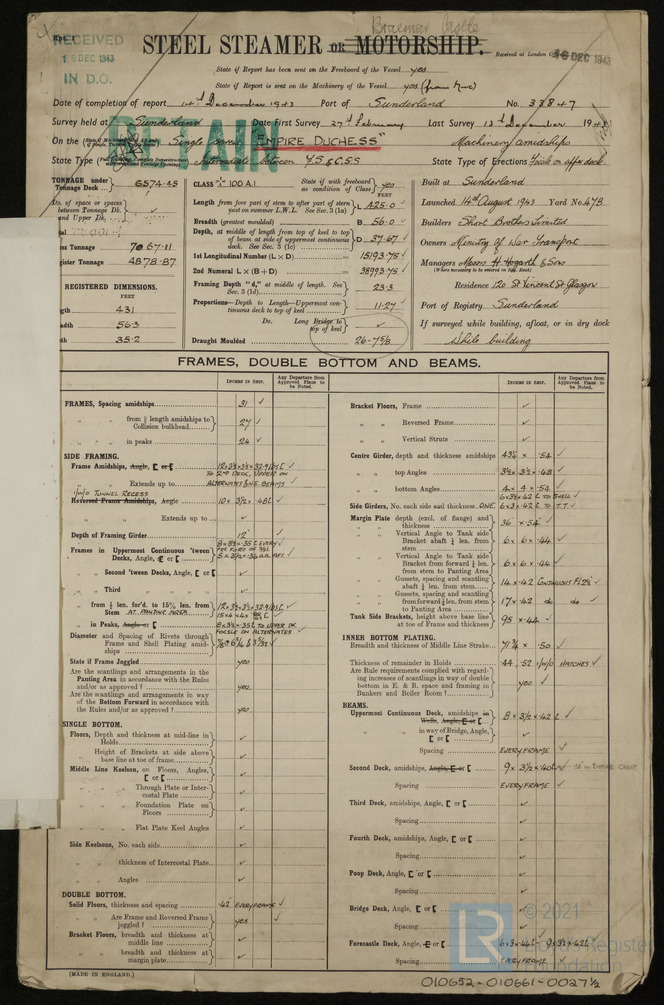 Braemar Castle
RECEIVED
18 DEC 1943
IN D.O.
STEEL STEAMER OR MOTORSHIP.
Received at London
16 DEC 1943
State if Report has been sent on the Freeboard of the Vessel yes
State if Report is sent on the Machinery of the Vessel yes
Date of completion of report 14th December 1943 Port of Sunderland No. 33847
Survey held at Sunderland Date First Survey 27th February Last Survey 13th December 1943
On the Single screw "EMPIRE DUCHESS" Machinery amidships
State Type Intermediate between F.S. & C.S.S State Type of Erections Focsle on upper deck
TONNAGE under Tonnage Deck 6574.45
Do. of space or spaces between Tonnage Dk. and Upper Dk.
Gross Tonnage 7067.11
Register Tonnage 4878.87
REGISTERED DIMENSIONS.
FEET
431
56.3
35.2
CLASS 100 A.1
State if with freeboard as condition of Class yes
FEET
Length from fore part of stem to after part of stern post on summer L.W.L. See Sec. 3 (1a) L 425.0
Breadth (greatest moulded) B 56.0
Depth, at middle of length from top of keel to top of beam at side of uppermost continuous deck. See Sec. 3 (1c) D 37.67
1st Longitudinal Number (L × D) = 15193.75
2nd Numeral L × (B + D) = 38993.75
Framing Depth "d," at middle of length. See Sec. 3 (1d) 23.3
Proportions—Depth to Length—Uppermost continuous deck to top of keel 11.27
Do. Long Bridge to top of keel
Draught Moulded 26-7 5/8
Built at Sunderland
Launched 14th August 1943 Yard No. 478
Builders Short Brothers Limited
Owners Ministry of War Transport
Managers Messrs H. Hogarth & Sons
(Where necessary to be entered in Reg. Book)
Residence 120 St Vincent St Glasgow
Port of Registry Sunderland
If surveyed while building, afloat, or in dry dock
while building
FRAMES, DOUBLE BOTTOM AND BEAMS.
INCHES IN SHIP.
Any Departure from Approved Plans to be Noted.
INCHES IN SHIP.
Any Departure from Approved Plans to be Noted.
FRAMES, Spacing amidships 31
" " from 1/5 length amidships to Collision bulkhead 27
" " in peaks 24
SIDE FRAMING.
Frame Amidships, Angle, [ or [
" " Extends up to TO 2ND DECK, UPPER ON ALTERNATES
TUNNEL RECESS
Reversed Frame Amidships, Angle 10 × 3½ × .48
" " Extends up to
Depth of Framing Girder 12"
Frames in Uppermost Continuous 'tween Decks, Angle, [ or [
" Second 'tween Decks, Angle, [ or [
" Third " " " "
" from ½ len. for'd. to 15% len. from Stem AT PANTING AREA
" in Peaks, Angle or [
Diameter and Spacing of Rivets through Frame and Shell Plating amidships
State if Frame Joggled yes
Are the scantlings and arrangements in the Panting Area in accordance with the Rules and/or as approved? yes
Are the scantlings and arrangements in way of the Bottom Forward in accordance with the Rules and/or as approved? yes
SINGLE BOTTOM.
Floors, Depth and thickness at mid-line in Holds
" Height of Brackets at side above base line at toe of frame
Middle Line Keelson, on Floors, Angles, [ or [
" " Through Plate or Intercostal Plate
" " Foundation Plate on Floors
" " Flat Plate Keel Angles
Side Keelsons, No. each side
" " thickness of Intercostal Plate
" " Angles
DOUBLE BOTTOM.
Solid Floors, thickness and spacing .42 EVERY FRAME
" " Are Frame and Reversed Frame joggled? yes
Bracket Floors, breadth and thickness at middle line
" " breadth and thickness at margin plate
(MADE IN ENGLAND.)
Bracket Floors, Frame
" " Reversed Frame
" " Vertical Struts
Centre Girder, depth and thickness amidships 43½ × .54
" " top Angles 3½ × 3½ × .48
" " bottom Angles 4 × 4 × .54
Side Girders, No. each side and thickness ONE
Margin Plate depth (excl. of flange) and thickness 36 × .54
" " Vertical Angle to Tank side Bracket abaft ¼ len. from stem 6 × 6 × .44
" " Vertical Angle to Tank side Bracket from forward ¼ len. from stem to Panting Area 6 × 6 × .44
" " Gussets, spacing and scantling abaft ¼ len. from stem 14 × .42 CONTINUOUS
" " Gussets, spacing and scantling from forward ¼ len. from stem to Panting Area 17 × .42 do do
Tank Side Brackets, height above base line at toe of Frame and thickness 95 × .44
INNER BOTTOM PLATING.
Breadth and thickness of Middle Line Strake 71¾ × .50
Thickness of remainder in Holds .44, .52 HATCHES
Are Rule requirements complied with regarding increases of scantlings in way of double bottom in E. & B. space and framing in Bunkers and Boiler Room? yes
BEAMS.
Uppermost Continuous Deck, amidships in Wells, Angle, [ or [ 8 × 3½ × .42
" " in way of Bridge, Angle, [ or [
Spacing EVERY FRAME
Second Deck, amidships, Angle, [ or [ 9 × 3½ × .40
Spacing EVERY FRAME
Third Deck, amidships, Angle, [ or [
Spacing
Fourth Deck, amidships, Angle, [ or [
Spacing
Poop Deck, Angle, [ or [
Spacing
Bridge Deck, Angle, [ or [
Spacing
Forecastle Deck, Angle, [ or [ 6 × 3 × .44 9 × 3½ × .42
Spacing EVERY FRAME
LR
© 2021
Lloyd's Register
Foundation
010652-010661-0027½